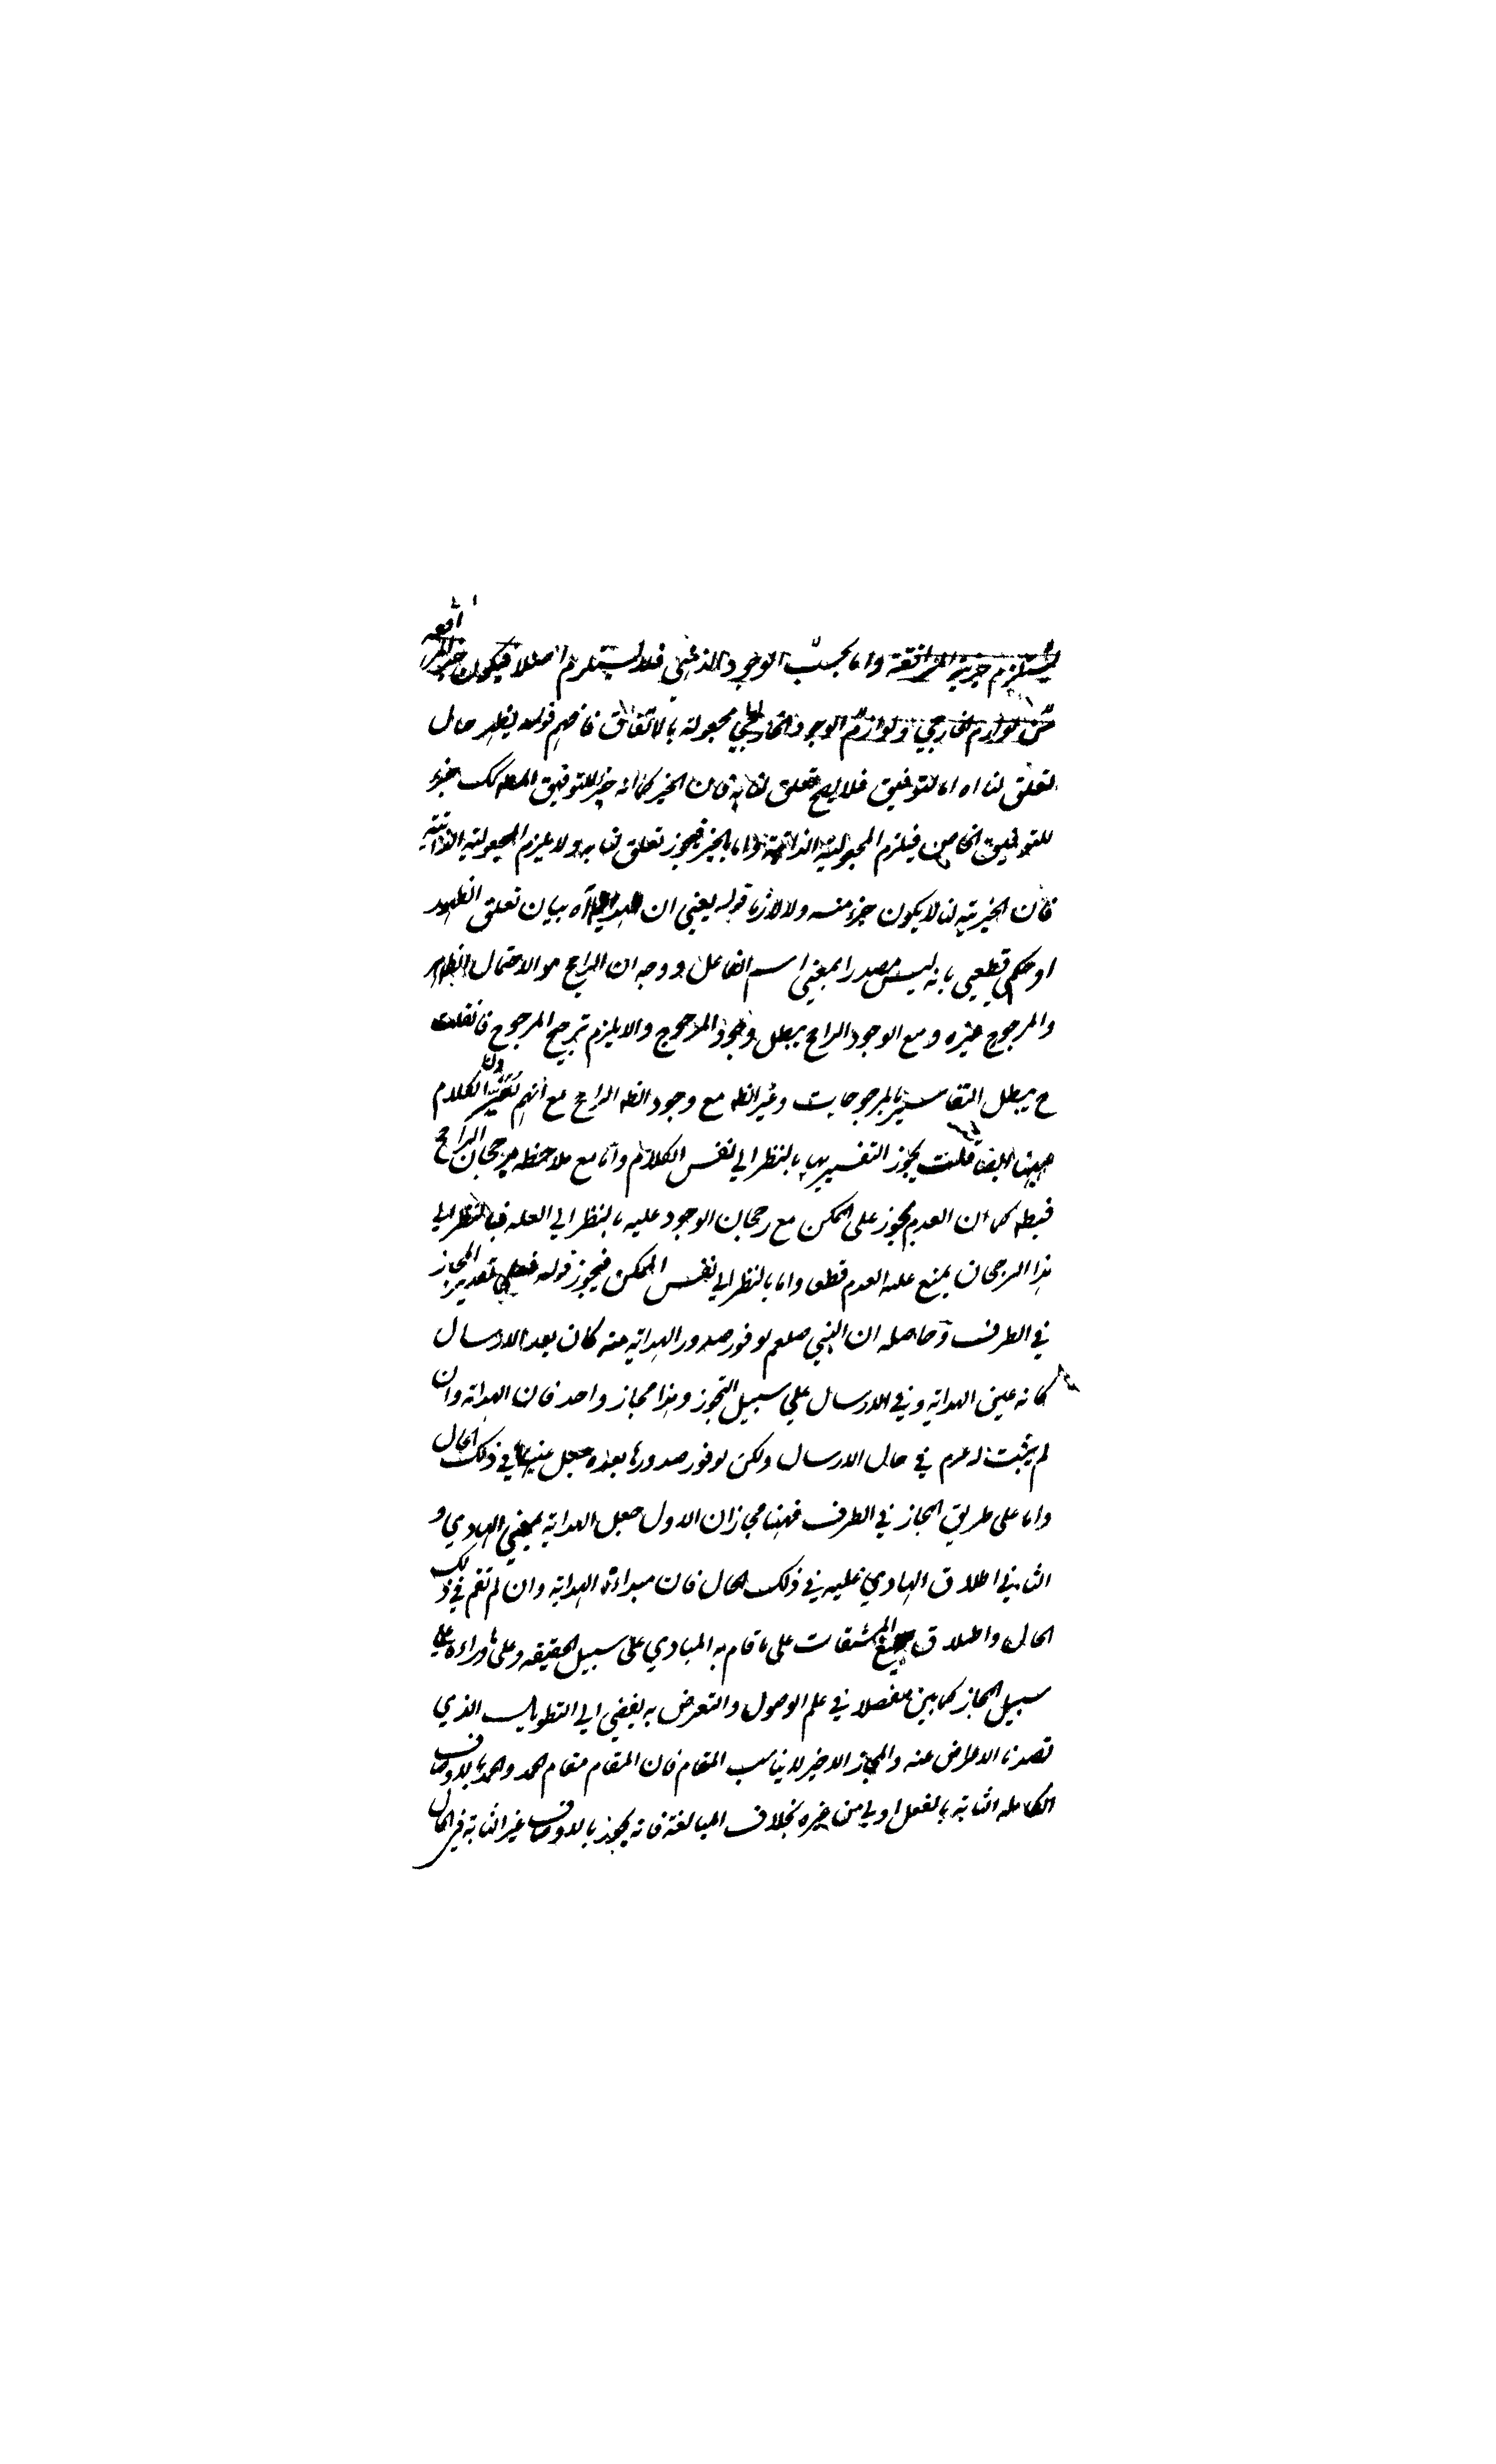 يستلزم خيرية المرافقة واما بحسب الوجود الذهني فلا يستلزم اصلا فيكون خير المرافقة
من لوازم الخارجي ولوازم الوجود الخارجي مجعولة بالاتفاق فافهم قوله يظهر حال
تعلق لنا اه اما لتوفيق فلا يصح تعلق لنا به فان الخير كما انه خير للتوفيق المط كك خير
للتوفيق الخاص فيلزم المجعولية الذاتية واما بالخير فيجوز تعلق لنا به ولا يلزم المجعولية الذاتية
فان الخيرية لنا لا يكون جزء منه ولا لازما قوله يعني ان الهداية اه بيان تعلق الظهور
او حكم قطعي بانه ليس مصدرا بمعنى اسم الفاعل ووجه ان الراجح هو الاحتمال الظاهر
والمرجوح غيره ومع الوجود الراجح يبطل وجود المرجوح والا يلزم ترجيح المرجوح فان قلت
ح يبطل التفاسير بالمرجوحات وغير الظ مع وجود الظ الراجح مع انهم يفسرون الكلام
بهما ايضا قلت يجوز التفسير بها بالنظر الي نفس الكلام واما مع ملاحظة رجحان الراجح
فيبطل كما ان العدم يجوز على الممكن مع رجحان الوجود عليه بالنظر الي العلة فبالنظر الي
هذا الرجحان يمنع عليه العدم قطعا واما بالنظر الي نفس الممكن فيجوز قوله فعلى تقدير المجاز
في الطرف وحاصله ان النبي صلعم لوفور صدور الهداية منه كان بعد الارسال
كانه عين الهداية وفي الارسال علي سبيل التجوز وهذا مجاز واحد فان الهداية وان
لم يثبت له عم في حال الارسال ولكن لوفور صدورها بعده جعل عينها في ذلك الحال
واما على طريق المجاز في الطرف فههنا مجازان الاول جعل الهداية بمعني الهادي و
الثاني اطلاق الهادي عليه في ذلك الحال فان مبداءه الهداية وان لم تقم في ذلك
الحال واطلاق صيغ المشتقات على ما قام به المبادي على سبيل الحقيقه وعلى ما وراءه على
سبيل المجاز كما بين مفصلا في علم الاصول والتعرض به يفضي الي التطويل الذي
قصدنا الاعراض عنه والمجاز الاخير لا يناسب المقام فان المقام مقام الحمد والحمد بالاوصاف
الكامله الثابته بالفعل اولي من غيره بخلاف المبالغة فانه يجوز بالاوصاف غير الثابته في الحال